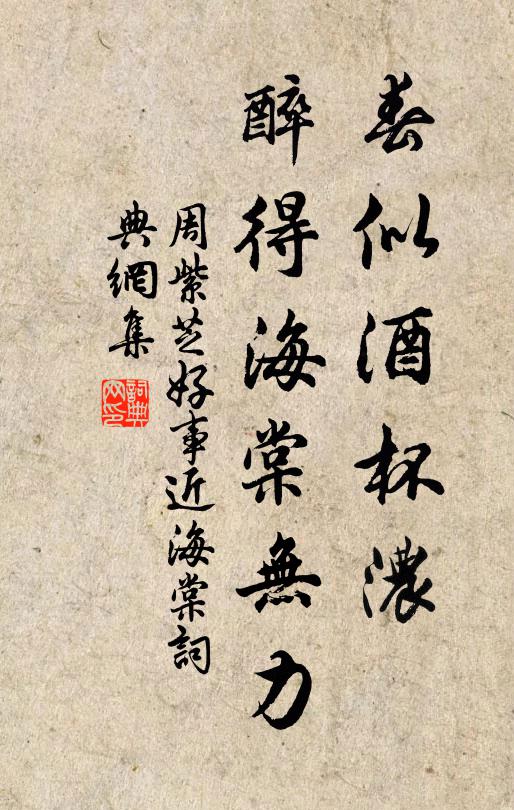 春似酒杯濃
醉得海棠無力
周紫芝好事近海棠詞
典網集
詞典
网印